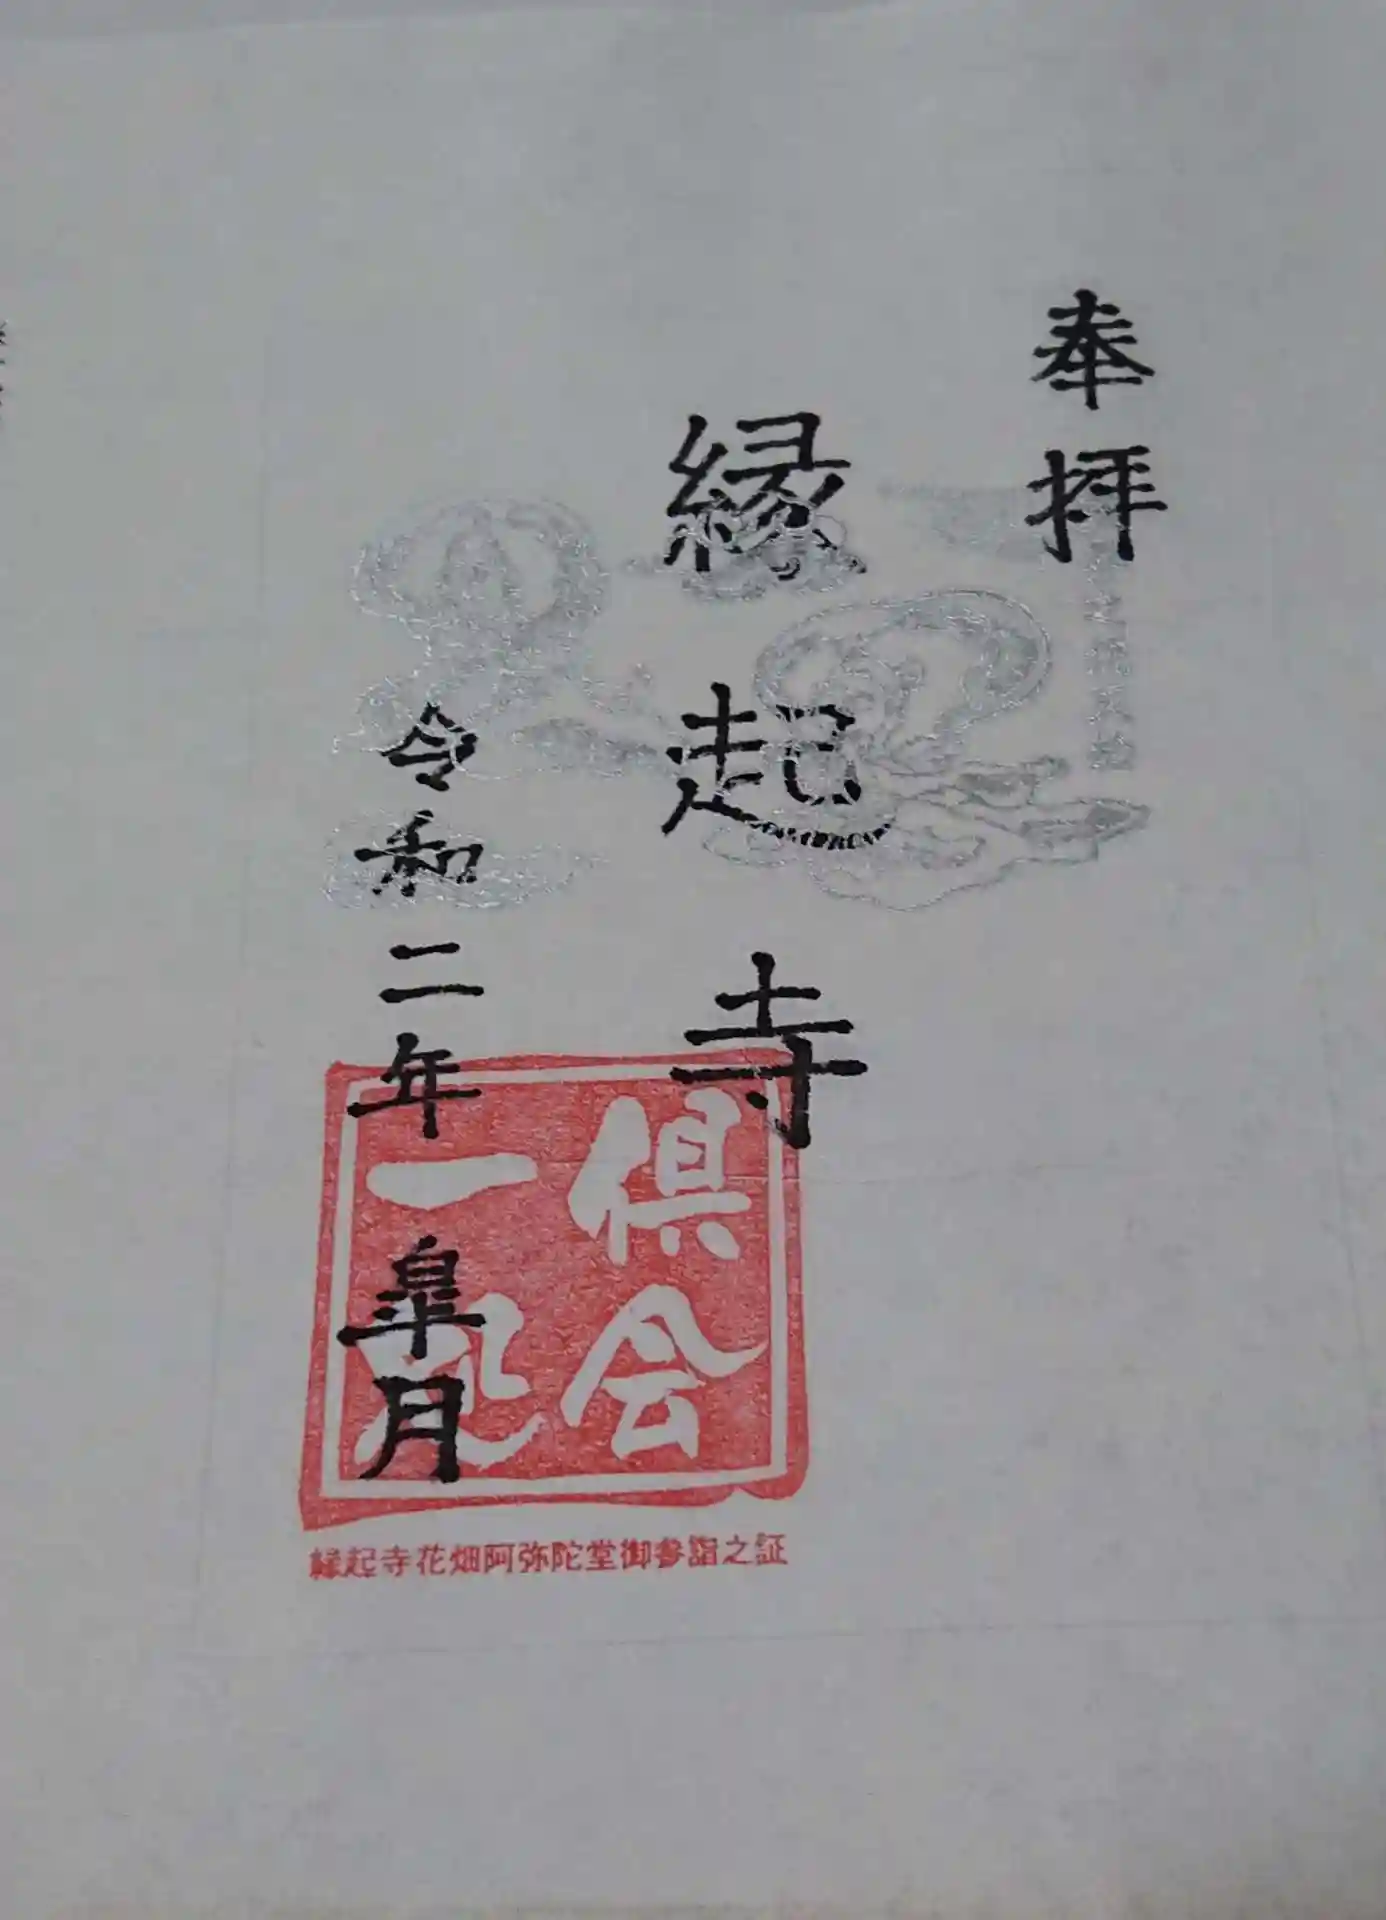 奉拝
縁起寺
令和二年
皐月
俱会
一処
縁起寺花畑阿弥陀堂御参詣之証